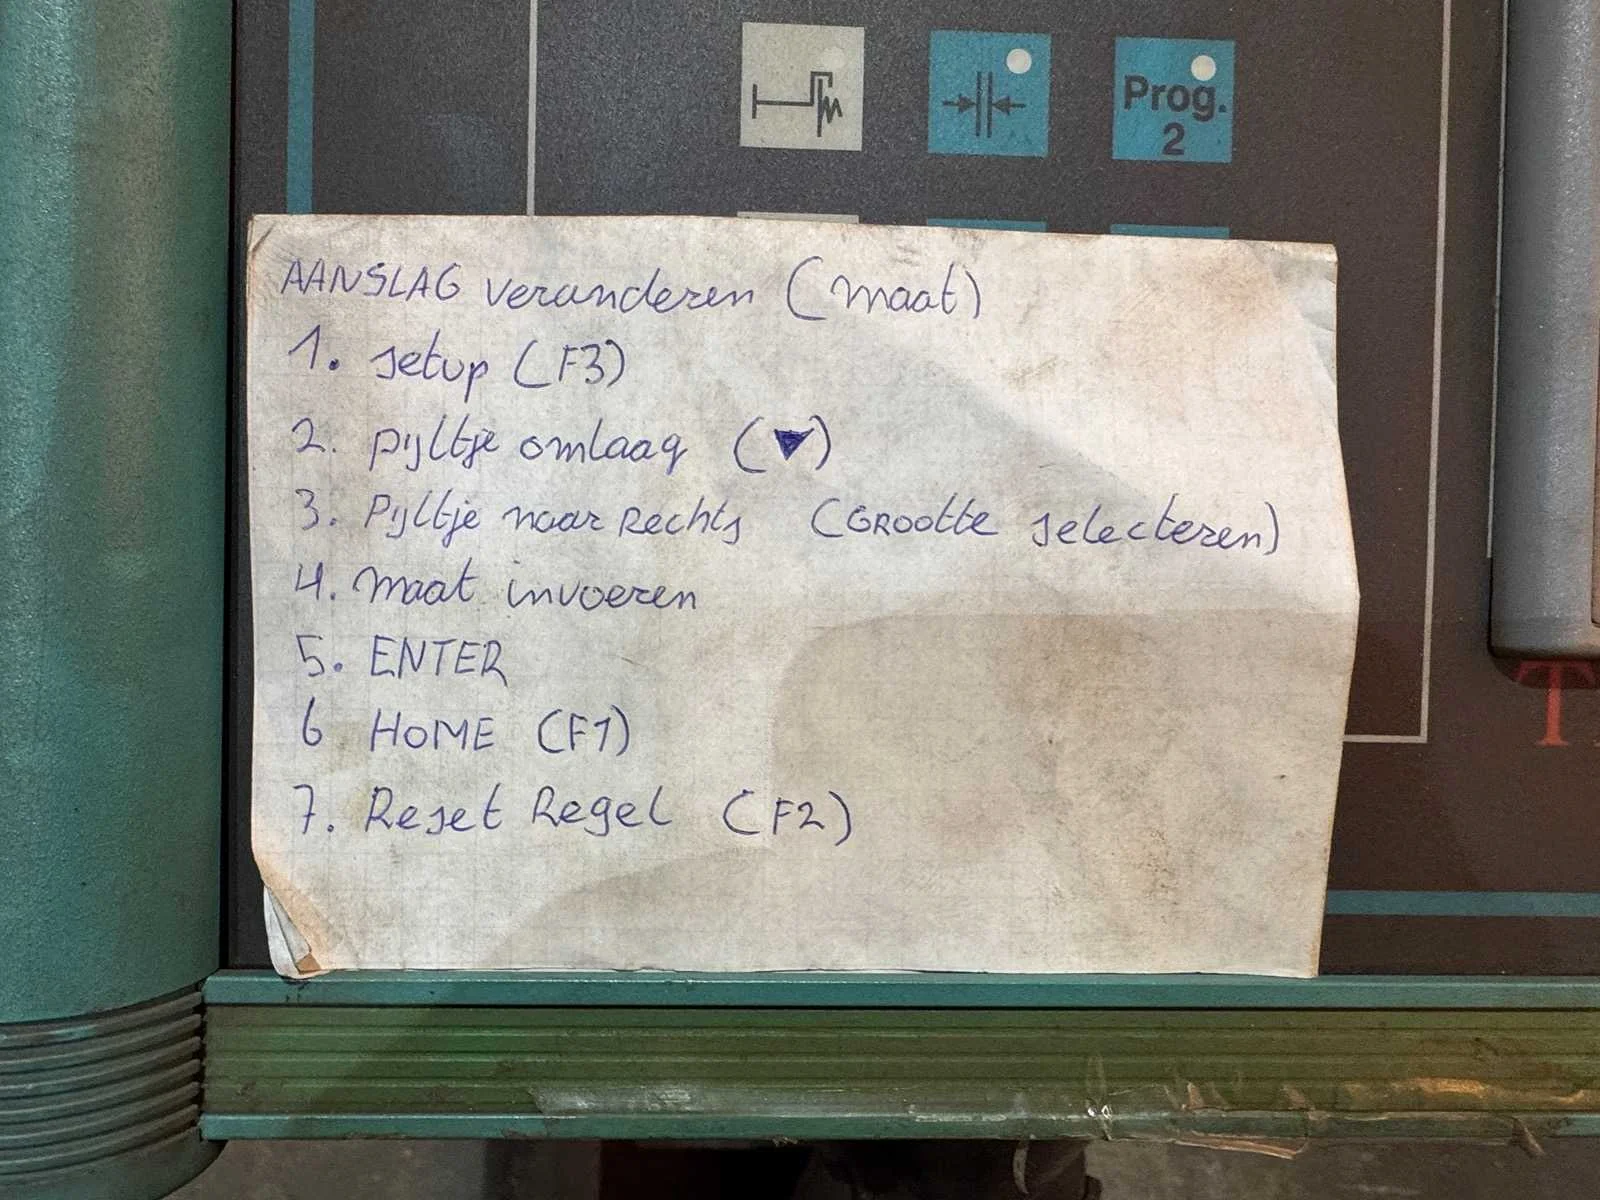 Prog.
2
AANSLAG veranderen (maat)
1. setup (F3)
2. pijltje omlaag (▼)
3. Pijltje naar Rechts (GROOtte selecteren)
4. maat invoeren
5. ENTER
6 HOME (F1)
7. Reset Regel (F2)
T